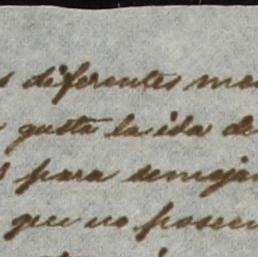 s diferentes me
gusta la ida de
para semeja
que no poseen